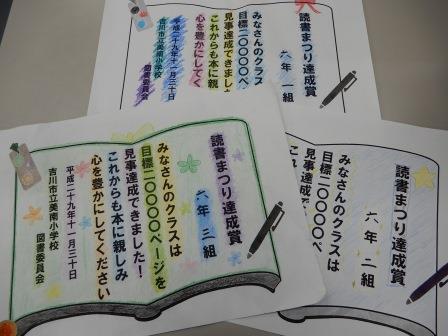 読書まつり達成賞
六年 一組
みなさんのクラス
目標二〇〇〇〇ペ
見事達成できまし
これからも本に親
心を豊かにしてく
平成二十九年十一月三十日
吉川市立美南小学校
図書委員会
読書まつり達成賞
六年 三組
みなさんのクラスは
目標二〇〇〇〇ページを
見事達成できました！
これからも本に親しみ
心を豊かにしてください
平成二十九年十一月三十日
吉川市立美南小学校
図書委員会
読書まつり達成賞
六年 二組
みなさんのクラスは
目標二〇〇〇〇ペ
見事達成でき
これ